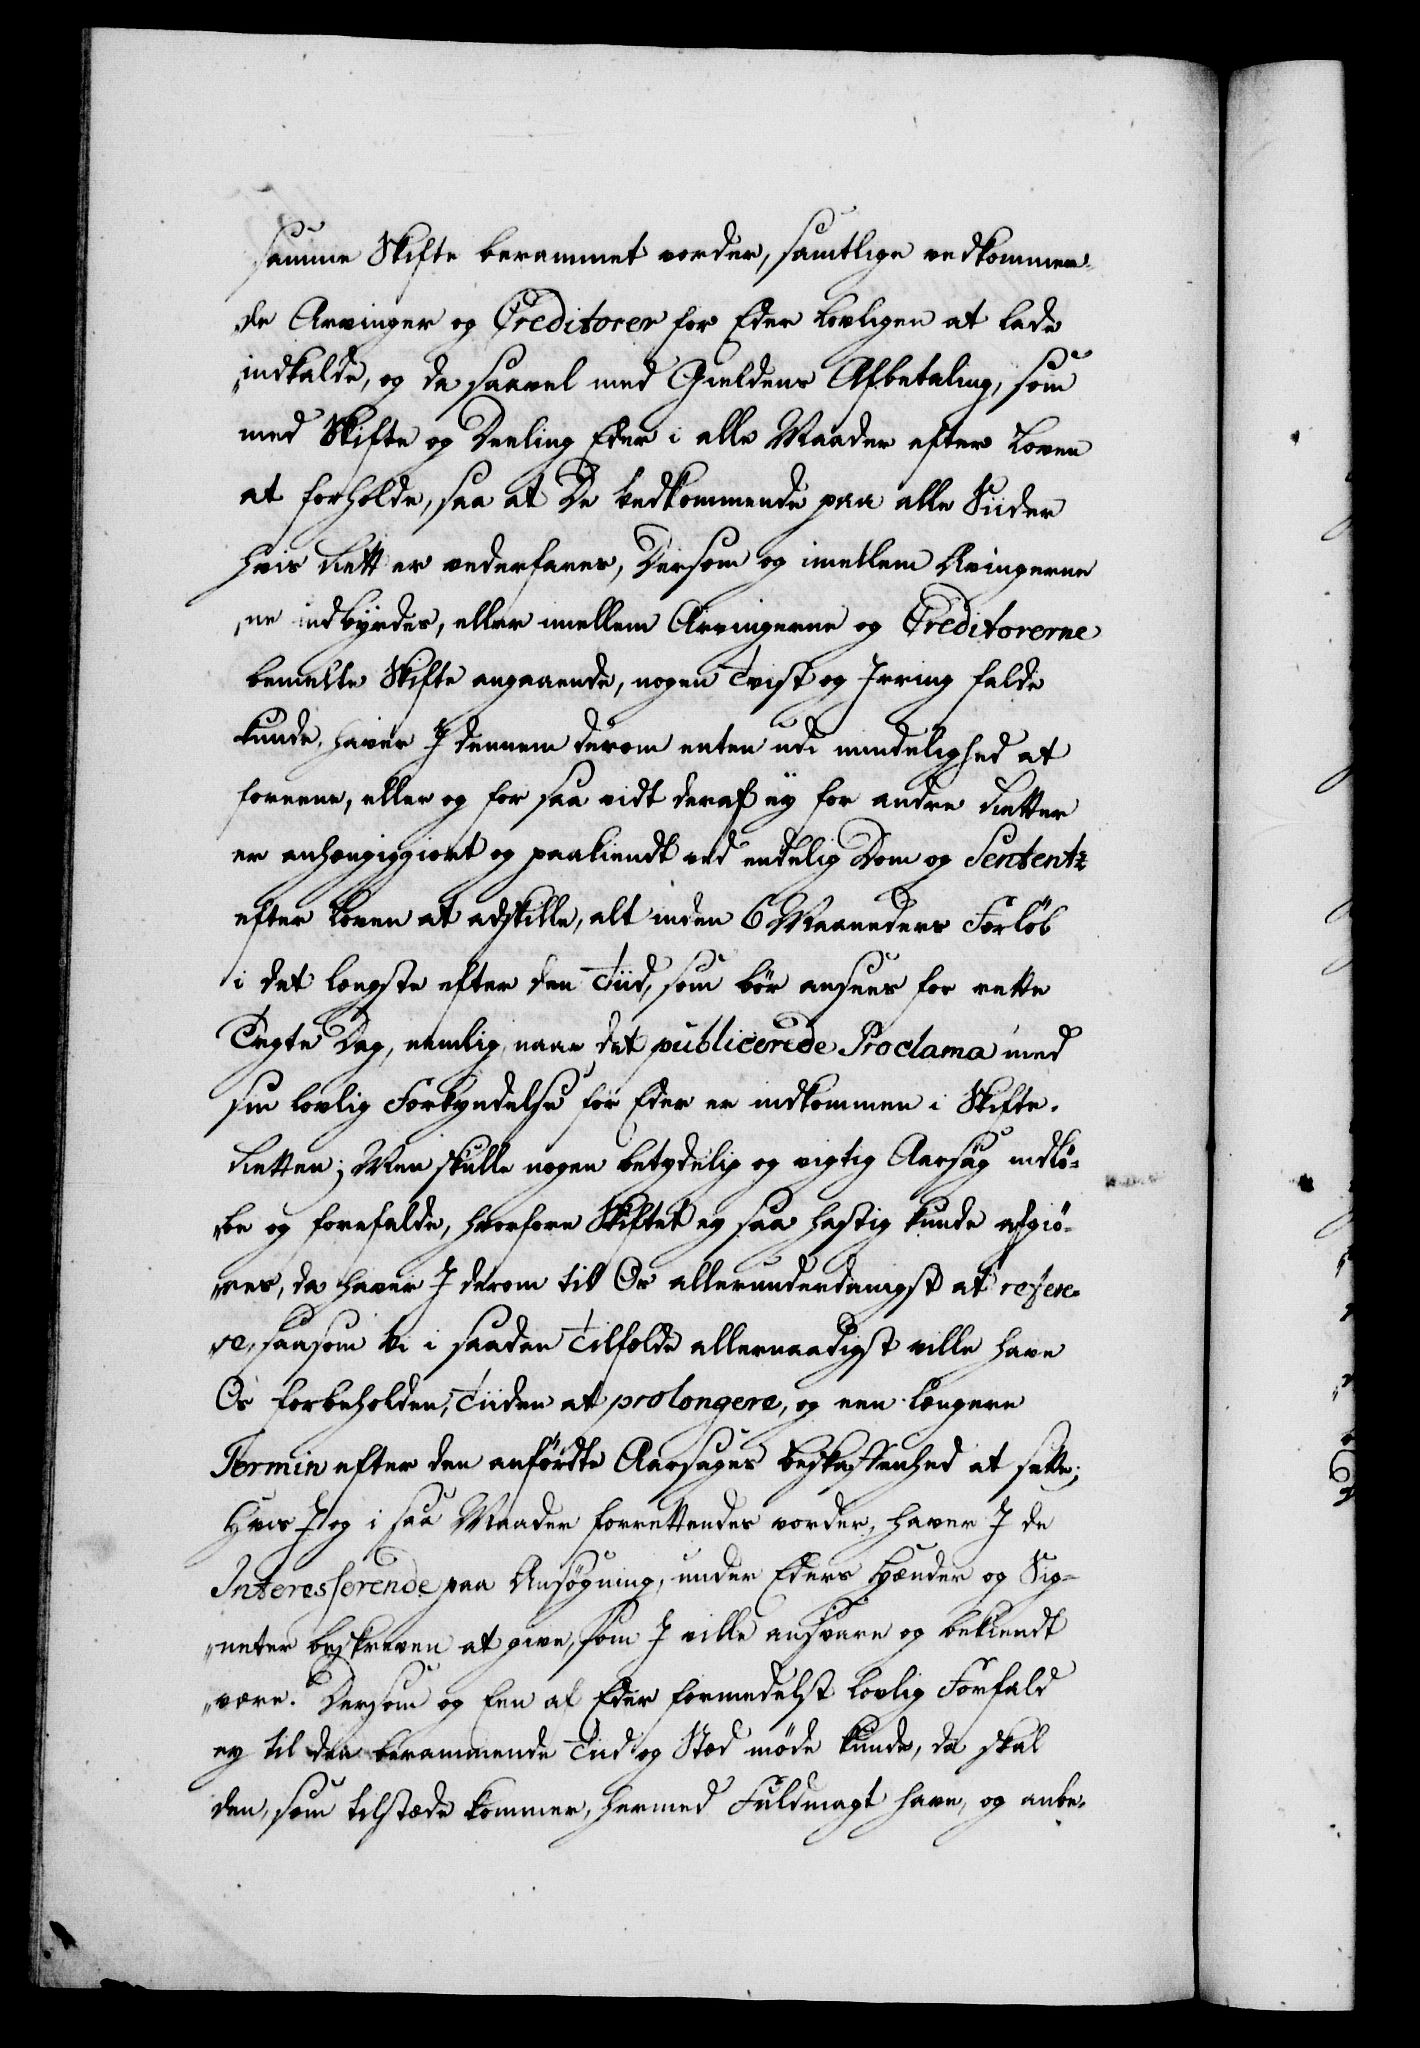 samme Skifte berammet vorder, samtlige vedkommen-
de Arvinger og Creditorer for Eder lovligen at lade
indkalde, og da saavel med Gieldens Afbetaling, som
med Skifte og Deeling Eder i alle Maader efter Loven
at forholde, saa at De Vedkommende paa alle Siider
hvis Rett er vederfares, Dersom og imellem Arvingerne
ne indbyrdes, eller imellem Arvingerne og Creditorerne
bemelte Skifte angaaende, nogen Tvist og Irring falde
kunde, haver I dennem derom enten udi mindelighed at
foreene, eller og for saa vidt deraf ey for andre Retter
er anhængiggiort og paakiendt ved endelig Dom og Sententz
efter Loven at adskille, alt inden 6 Maaneders Forløb
i det længste efter den Tiid, som bør ansees for rette
Tegte Dag, nemlig naar det publicerede Proclama med
sin lovlig Forkyndelse for Eder er indkommen i Skifte-
Retten; Men skulle nogen betydelig og vigtig Aarsag indlø-
be og forefalde, hvorfore Skiftet ey saa hastig kunde afgiø-
res, da haver I derom til Os allerunderdanigst at refere-
re, saasom Vi i saadan Tilfælde allernaadigst ville have
Os forbeholden, Tiiden at prolongere, og een længere
Termin efter den anførdte Aarsages beskaffenhed at sette;
Hvis I og i saa Maader forrettendes vorder, haver I de
Interesserende paa Ansøgning, under Eders Hænder og Sig-
neter beskreven at give, som I ville ansvare og bekiendt
være. Dersom og Een af Eder formedelst lovlig Forfald
ey til den berammende Tiid og Sted møde kunde, da skal
den, som tilstæde kommer, hermed Fuldmagt have, og anbe-